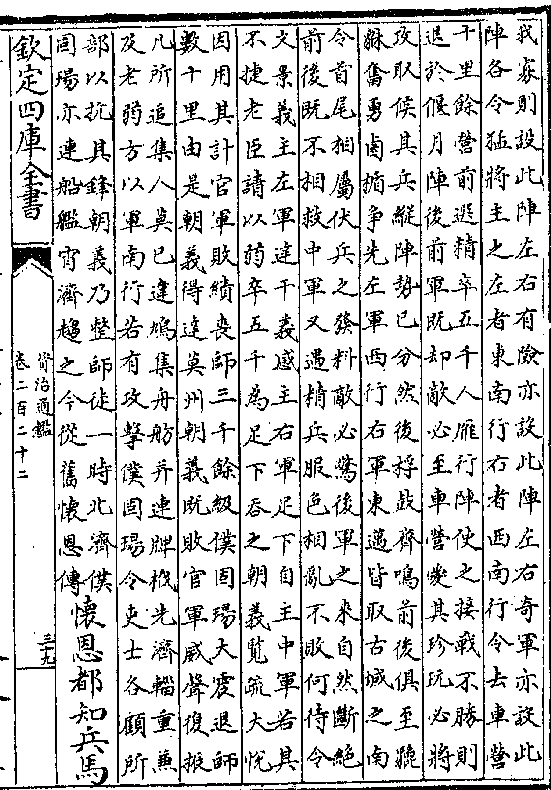 我寡則設此陣左右有險亦設此陣左右奇軍亦設此
陣各令猛將主之左者東南行右者西南行令去車營
十里餘營前選精卒五千人雁行陣使之接戰不勝則
退於偃月陣後前軍既却敵必至車營覺其珍玩必將
攻取候其兵縱陣勢已分然後桴鼓齊鳴前後俱至貔
貅奮勇鹵楯争先左軍西行右軍東邁皆取古城之南
令首尾相屬伏兵之發料敵必驚後軍之來自然斷絶
前後既不相救中軍又遇精兵服色相亂不敗何待令
文景義主左軍逹干義感主右軍足下自主中軍若其
不捷老臣請以弱卒五千為足下吞之朝義覽疏大悅
因用其計官軍敗績喪師三千餘級僕固瑒大震退師
數十里由是朝義得逹莫州朝義既敗官軍威聲復振
凡所追集人莫已違鳩集舟舫并連牌栰先濟輜重兼
及老弱方以軍南行若有攻擊僕固瑒令吏士各顧所
部以抗其鋒朝義乃整師徒一時北濟僕
固瑒亦連船艦宵濟趨之今從舊懷恩傳
懷恩都知兵馬
欽定四庫全書
資治通鑑
卷二百二十二
三十九